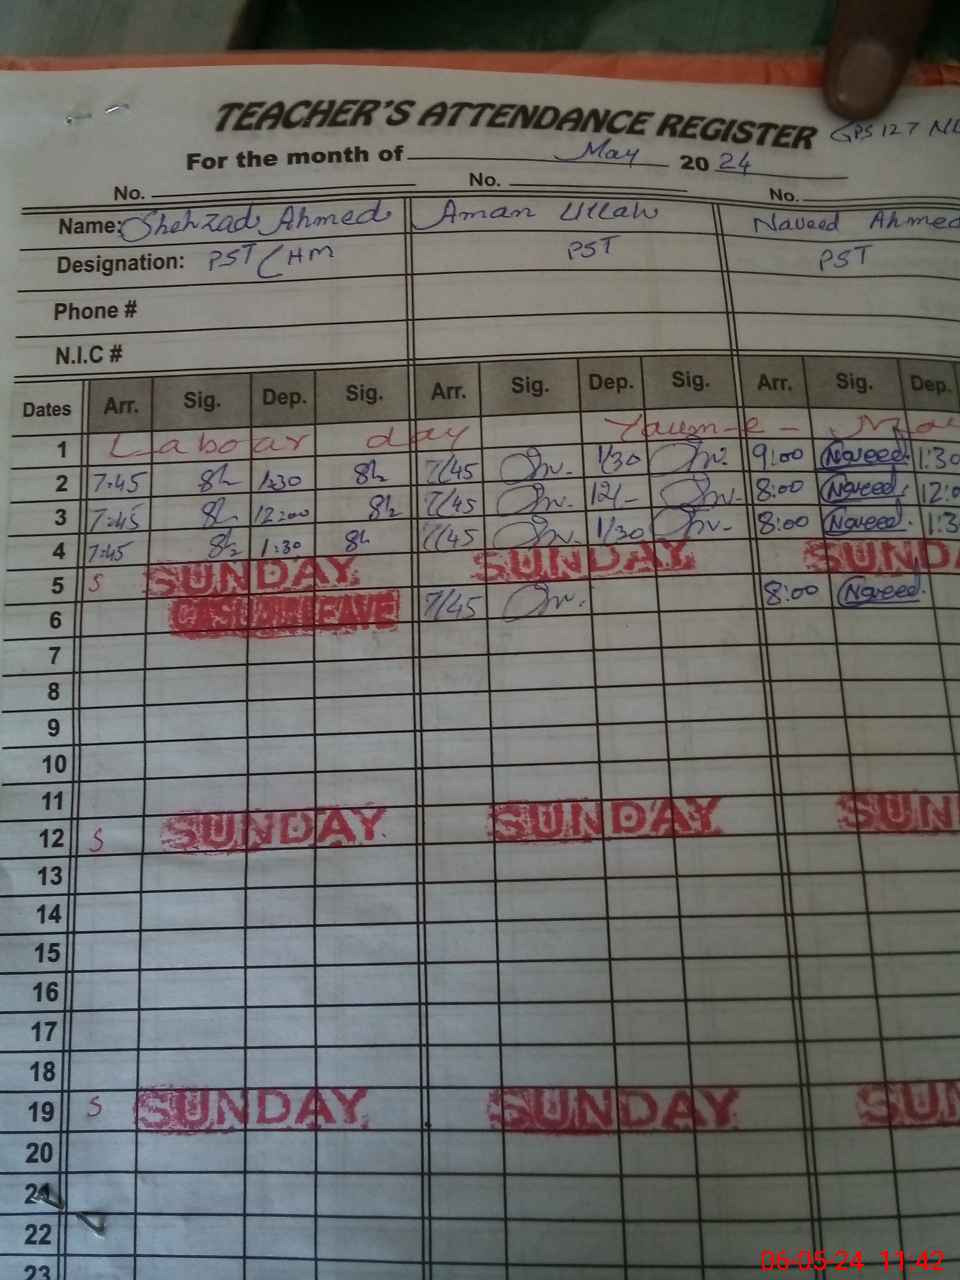 TEACHER'S ATTENDANCE REGISTER GPS 127
For the month of May 2024
No. No. No.
Name: Shehzad Ahmed Aman Ullah Naveed Ahmed
Designation: PST/HM PST PST
Phone #
N.I.C #
Dates Arr. Sig. Dep. Sig. Arr. Sig. Dep. Sig. Arr. Sig. Dep.
1 Laboar day Yaum-e-
2 7:45 1:30 7/45 1/30 9:00 Naveed 1:30
3 7:45 12:00 7/45 12/- 8:00 Naveed 12:0
4 7:45 1:30 7/45 1/30 8:00 Naveed 1:3
5 S SUNDAY SUNDAY SUNDA
6 CASUAL LEAVE 7/45 8:00 Naveed
7
8
9
10
11
12 S SUNDAY SUNDAY SUN
13
14
15
16
17
18
19 S SUNDAY SUNDAY SUN
20
21
22
23
06-05-24 11:42